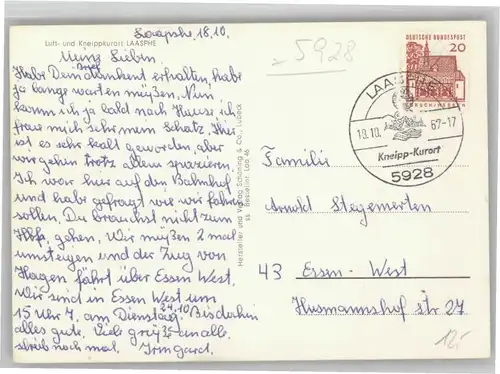 Laasphe, 18.10.
Luft- und Kneippkurort LAASPHE
Mein Lieben.
Habe Dein Brief dankend erhalten, habe
ja lange warten müßen. Nun
kann ich ja bald nach Hause, ich
freue mich sehr mein Schatz. Hier
ist es sehr kalt geworden, aber
wir gehen trotz allem spazieren.
Ich war hier auf den Bahnhof
und habe gefragt wie wir fahren
sollen. Du brauchst nicht zum
gehen. Wir müßen 2 mal
umsteigen und der Zug von
Hagen fährt über Essen West.
Wir sind in Essen West um
15 Uhr 7, am Dienstag 24.10. Bis dahin
alles gute. Viele grüße an alle.
schreib noch mal. Irmgard.
Hersteller und Verlag Schöning & Co., Lübeck
Bestellnr. Laa 46
5928
DEUTSCHE BUNDESPOST
20
LORSCH/HESSEN
LAASPHE
18.10. 67-17
Kneipp-Kurort
5928
Familie
Arnold Stegemerten
43 Essen-West
Husmannshof str 27
12,-